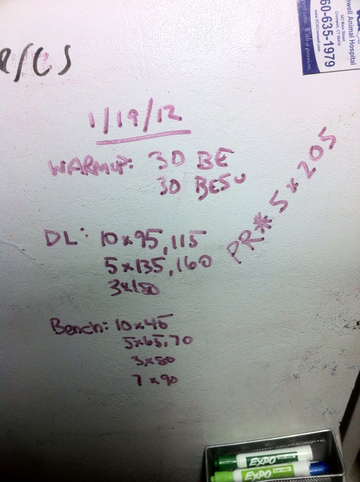 R/CS
well Animal Hospital
60-635-1979
1/19/12
WARMUP: 30 BE
30 BESU
PR* 5 x 205
DL: 10x95, 115
5x135, 160
3x180
Bench: 10x45
5x65, 70
3x80
7x90
EXPO
EXPO